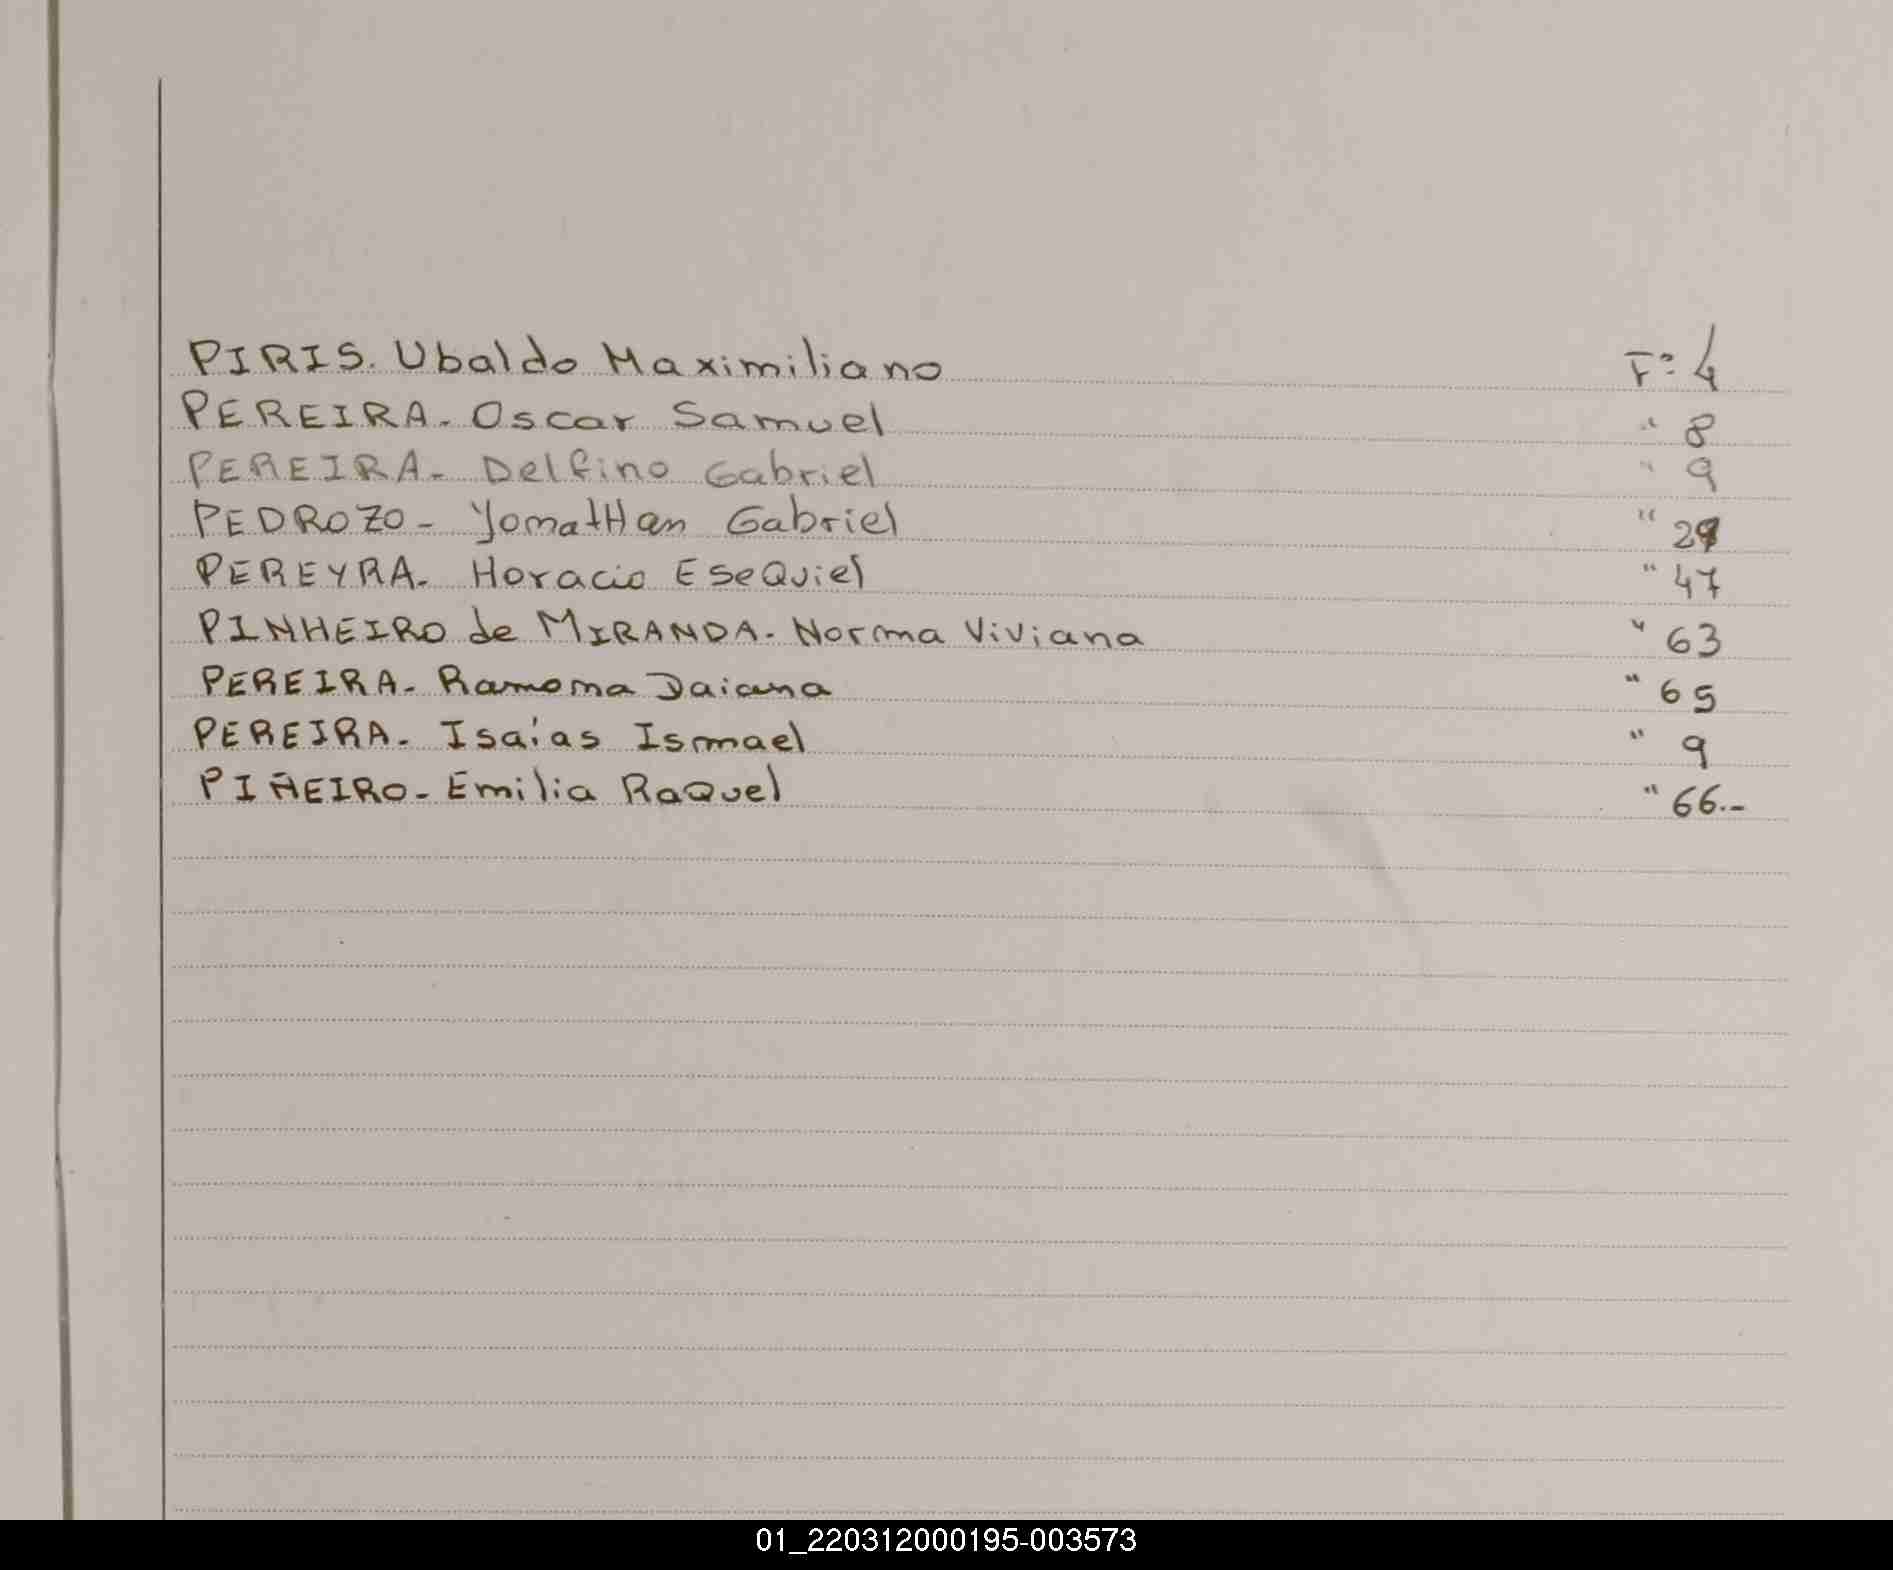 PIRIS. Ubaldo Maximiliano F: 4
PEREIRA. Oscar Samuel " 8
PEREIRA- Delfino Gabriel " 9
PEDROZO- YonatHan Gabriel "
PEREYRA- Horacio EseQuiel " 47
PINHEIRO de MIRANDA. Norma Viviana " 63
PEREIRA- Ramona Daiana " 65
PEREIRA- Isaías Ismael " 9
PIÑEIRO- Emilia RaQuel " 66.-
01_220312000195-003573